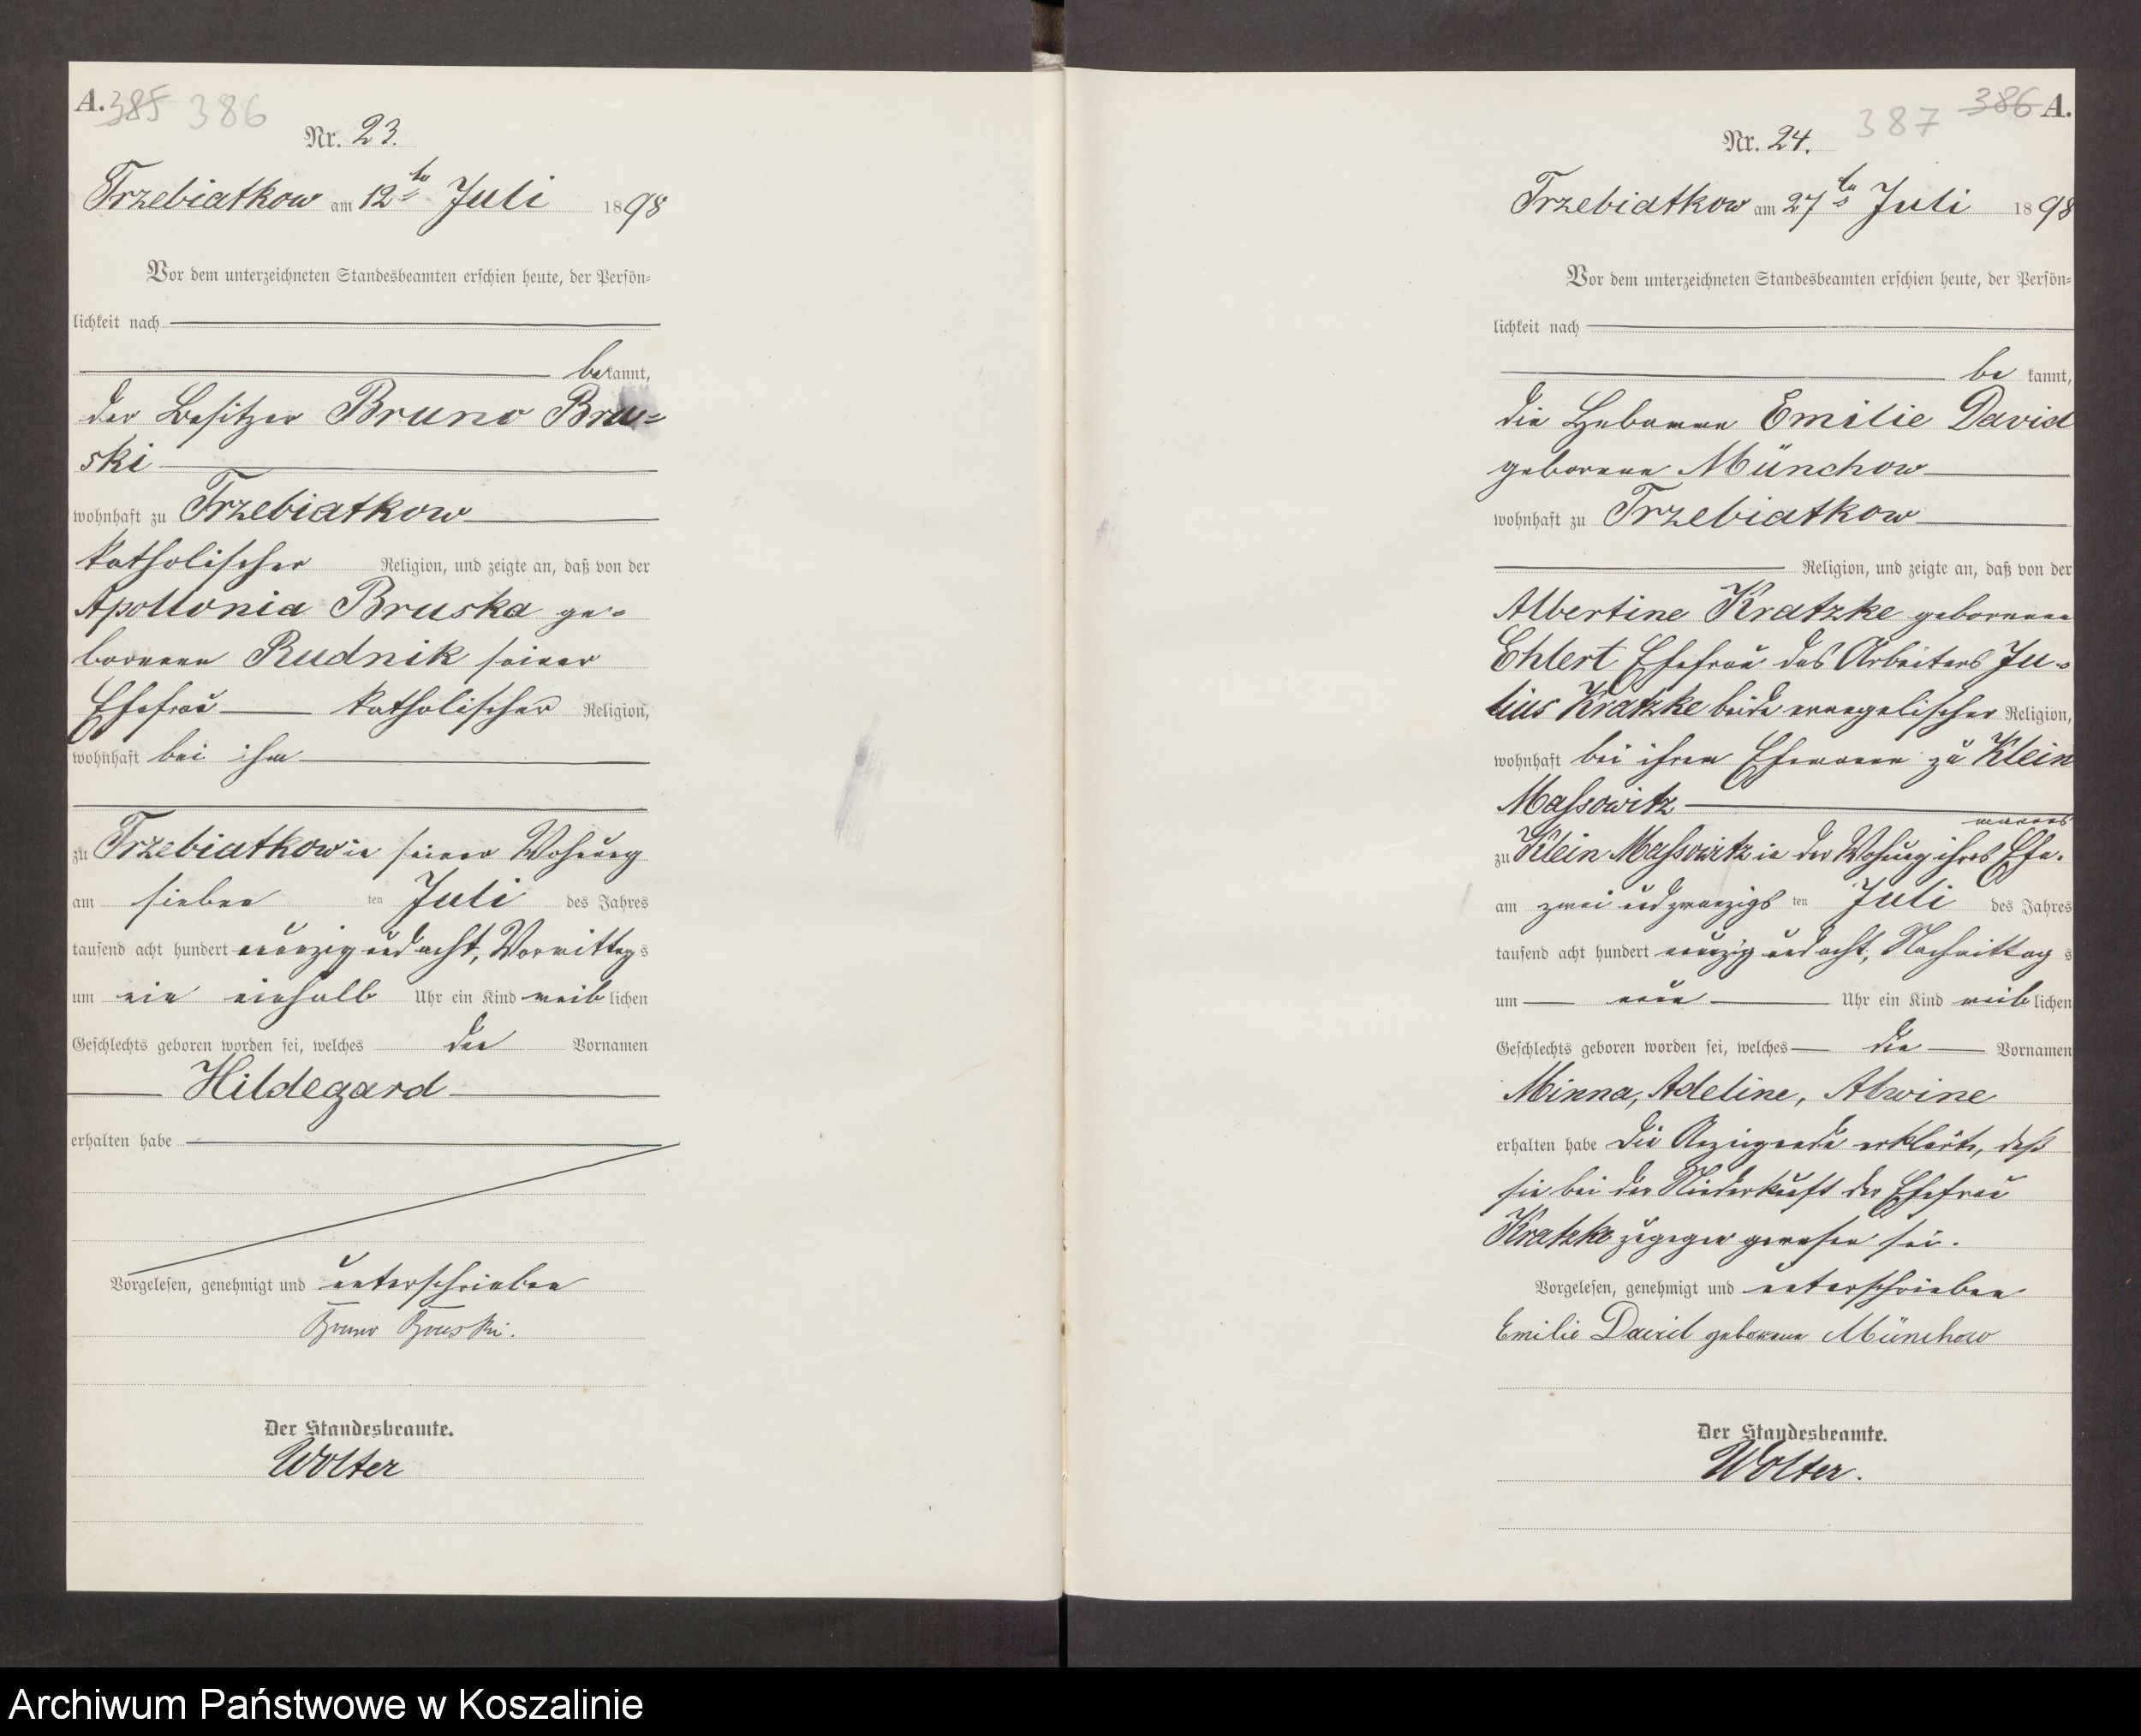 A. 385 386
Nr. 23.
Trzebiatkow am 12ten Juli 1898
Vor dem unterzeichneten Standesbeamten erschien heute, der Persön-
lichkeit nach
bekannt,
der Besitzer Bruno Bru-
ski
wohnhaft zu Trzebiatkow
katholischer Religion, und zeigte an, daß von der
Apollonia Bruska ge-
borenen Rudnik seiner
Ehefrau katholischer Religion,
wohnhaft bei ihm
zu Trzebiatkow in seiner Wohnung
am sieben ten Juli des Jahres
tausend acht hundert neunzig und acht, Vormittags
um ein einhalb Uhr ein Kind weiblichen
Geschlechts geboren worden sei, welches den Vornamen
Hildegard
erhalten habe
Vorgelesen, genehmigt und unterschrieben
Bruno Bruski.
Der Standesbeamte.
Wolter
387 386 A.
Nr. 24.
Trzebiatkow am 27ten Juli 1898
Vor dem unterzeichneten Standesbeamten erschien heute, der Persön-
lichkeit nach
bekannt,
die Hebamme Emilie David
geborene Münchow
wohnhaft zu Trzebiatkow
Religion, und zeigte an, daß von der
Albertine Kratzke geborenen
Ehlert Ehefrau des Arbeiters Ju-
lius Kratzke beide evangelischer Religion,
wohnhaft bei ihrem Ehemann zu Klein
Massowitz
mannes
zu Klein Massowitz in der Wohnung ihres Ehe-
am zwei und zwanzigs ten Juli des Jahres
tausend acht hundert neunzig und acht, Nachmittags
um neun Uhr ein Kind weiblichen
Geschlechts geboren worden sei, welches die Vornamen
Minna, Adeline, Alwine
erhalten habe Die Anzeigende erklärte, daß
sie bei der Niederkunft der Ehefrau
Kratzke zugegen gewesen sei.
Vorgelesen, genehmigt und unterschrieben
Emilie David geborene Münchow
Der Standesbeamte.
Wolter.
Archiwum Państwowe w Koszalinie